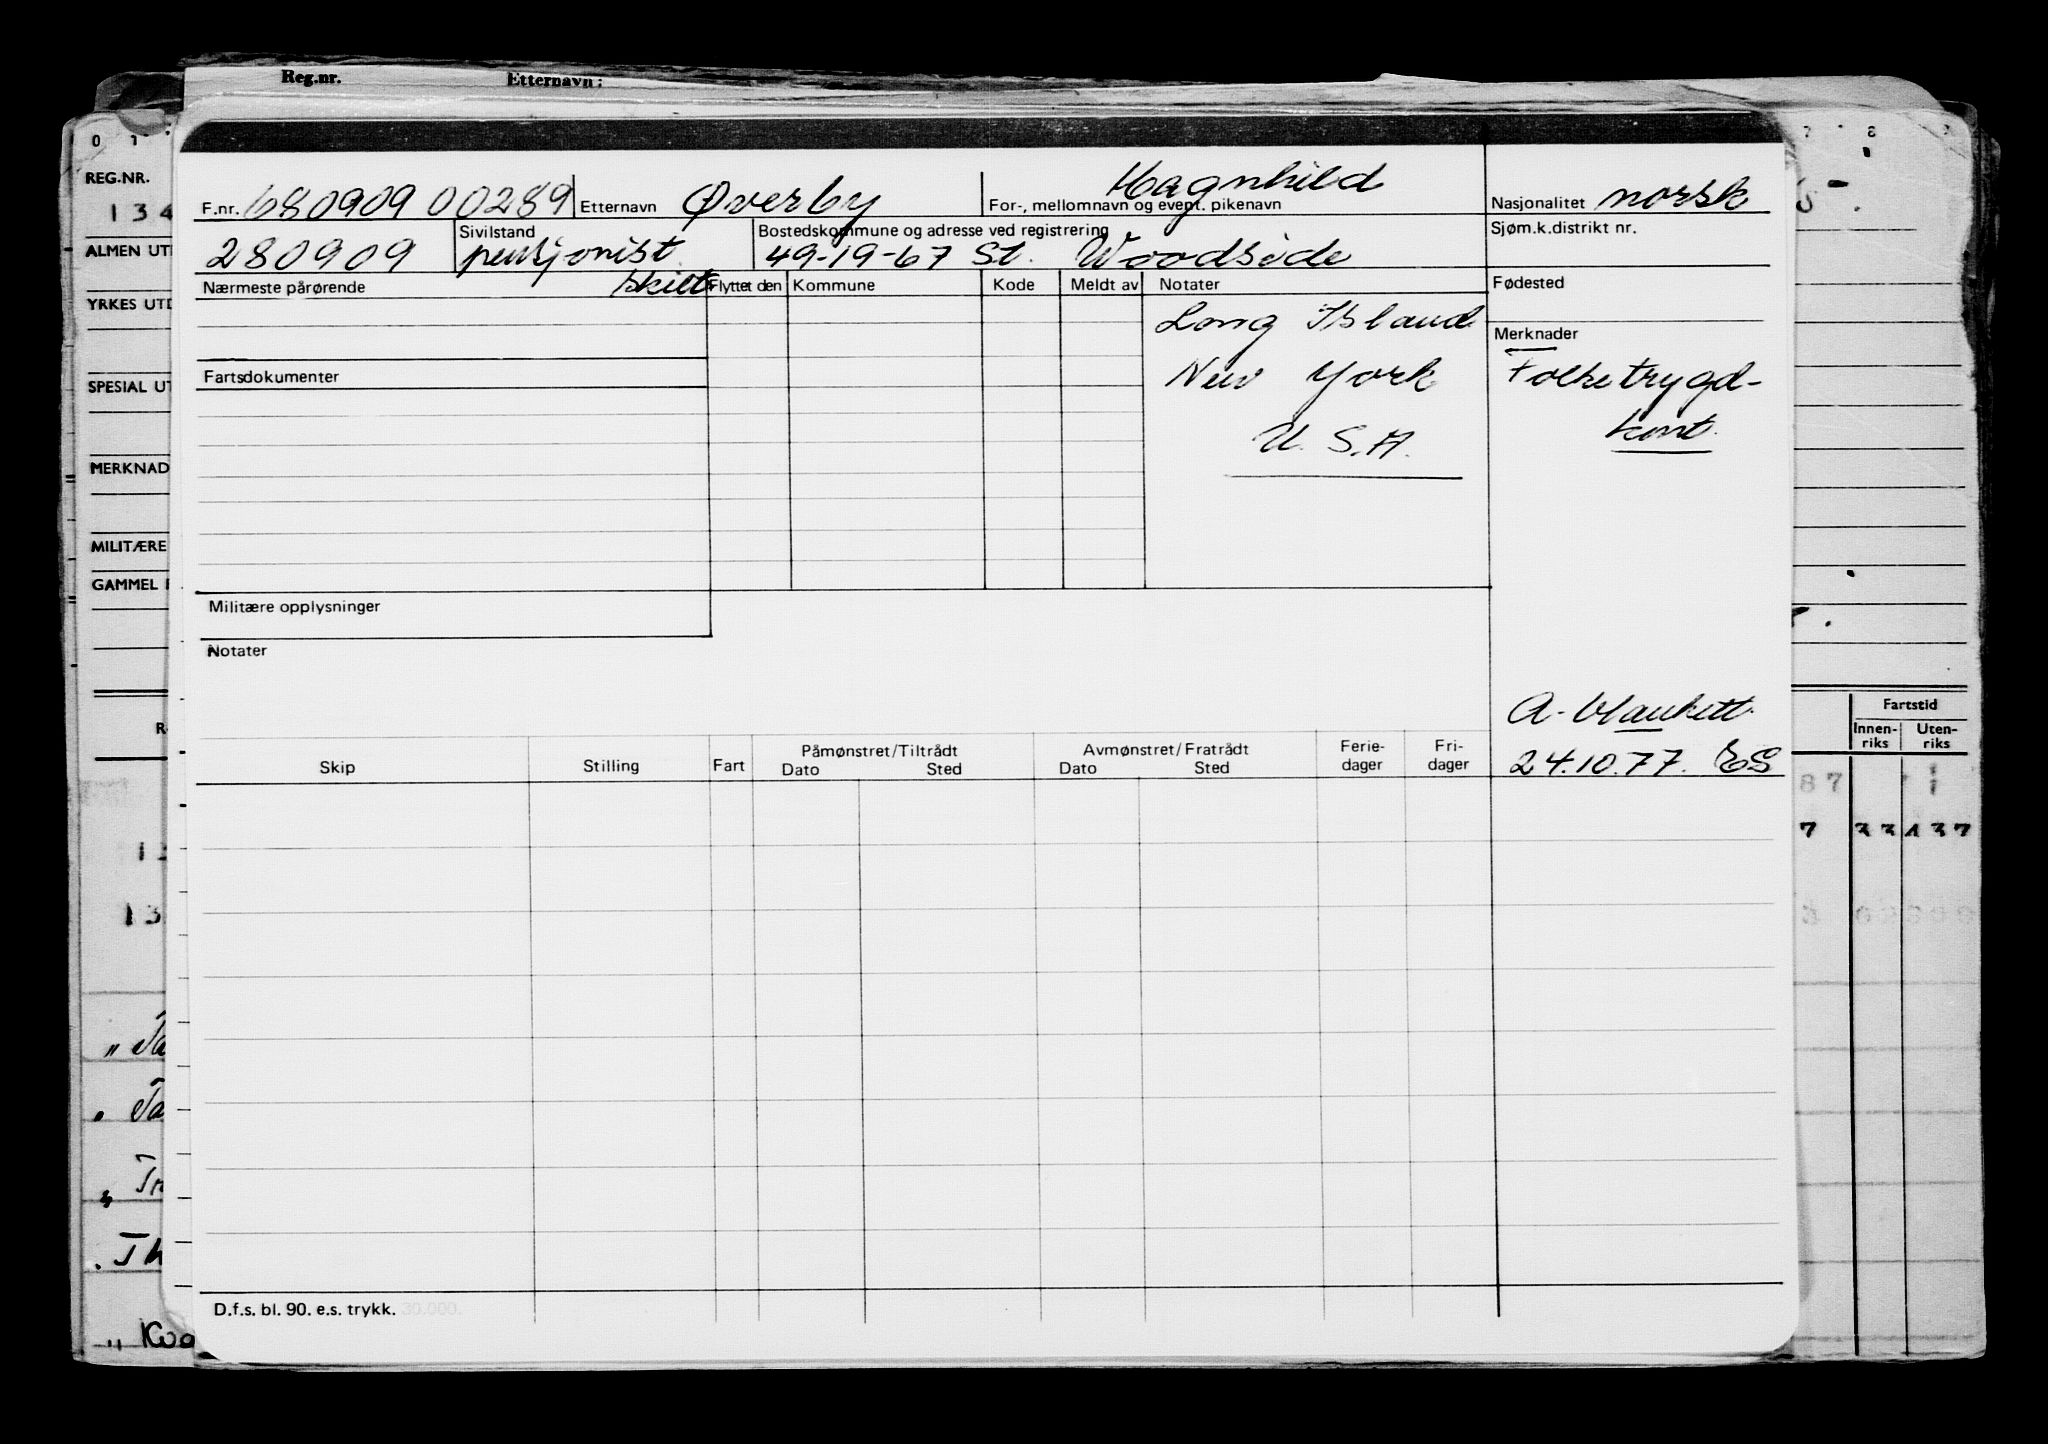 Reg.nr. Etternavn :
0 1 7 8
REG.NR.
1 3 4
ALMEN UT
YRKES UTD
SPESIAL UT
MERKNAD
MILITÆRE
GAMMEL
F.nr. 680909 00289 Etternavn Øverby For-, mellomnavn og event. pikenavn Hagnhild Nasjonalitet norsk
280909 Sivilstand pensjonist skilt Bostedskommune og adresse ved registrering 49-19-67 St. Woodside Sjøm.k.distrikt nr.
Nærmeste pårørende Flyttet den Kommune Kode Meldt av Notater Fødested
Long Island
New York
U.S.A.
Merknader
Folketrygd-
kont.
Fartsdokumenter
Militære opplysninger
Notater
A-blankett
24.10.77. ES
Skip Stilling Fart Påmønstret/Tiltrådt Dato Sted Avmønstret/Fratrådt Dato Sted Ferie-dager Fri-dager
Fartstid
Innen-riks Uten-riks
87
D.f.s. bl. 90. e.s. trykk. 30.000.